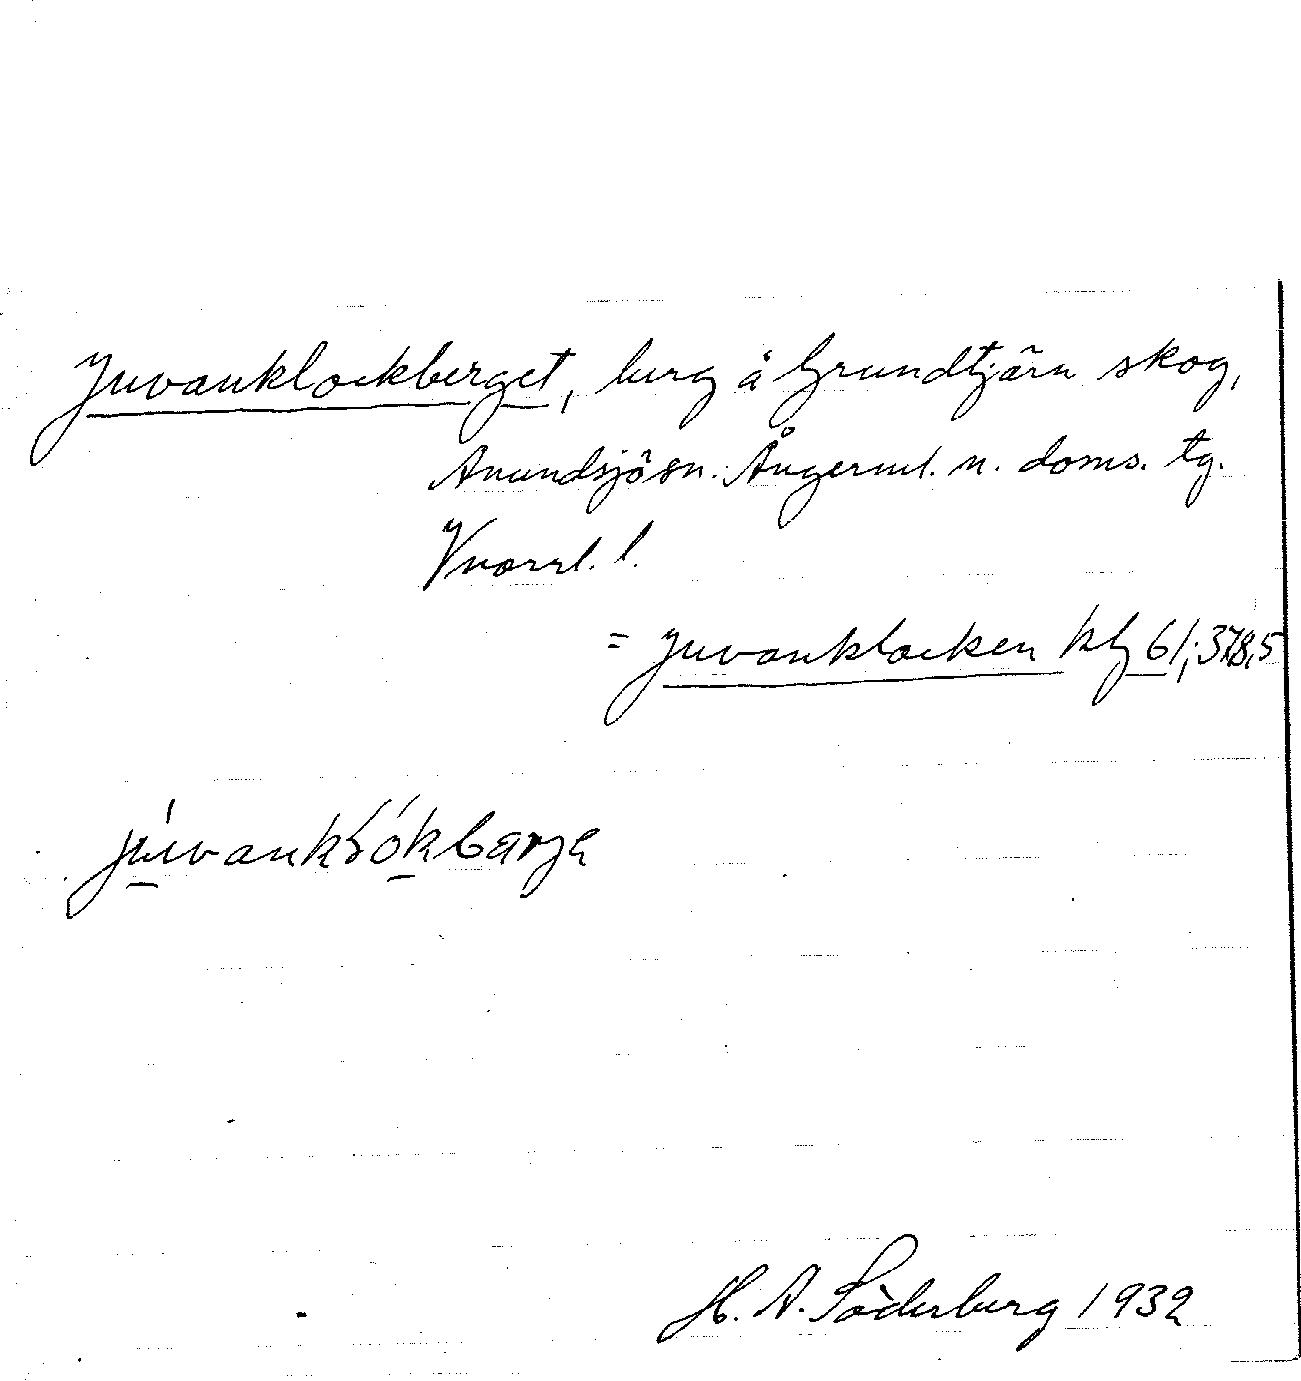 Juvanklockberget, berg å Grundtjärn skog,
Anundsjö sn. Ångerml. n. doms. tg.
Vnorrl. l.
= Juvanklocken kbl 61; 378,5
H. A. Söderberg 1932